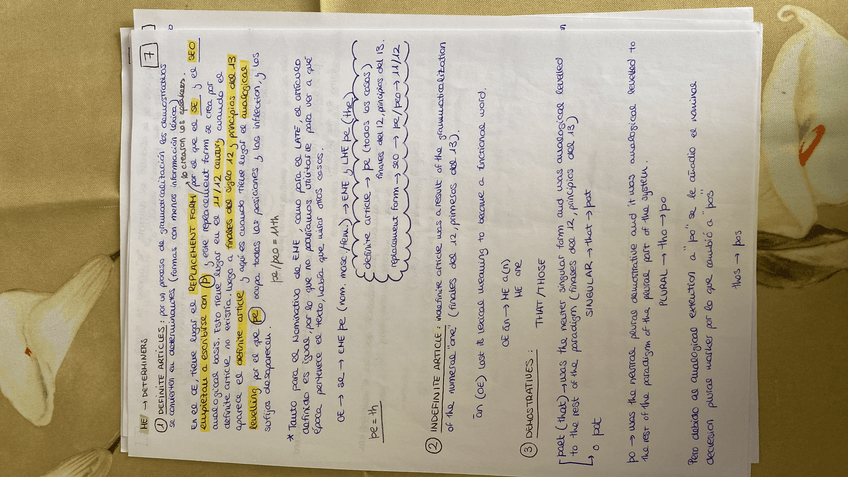 7
ME → DETERMINERS
① DEFINITE ARTICLES: por un proceso de gramaticalización los demostrativos
se convierten en determinantes (formas con menos información léxica)
↳ lo crearon los speakers.
En el OE, tiene lugar el REPLACEMENT FORM por el que el SE y el SEO
empiezan a escribirse con (þ) y ese replacement form se crea por
analogical basis. Esto tiene lugar en el 11/12 century cuando el
definite article no existía. Luego a finales del siglo 12 y principios del 13
aparece el definite article y aquí es cuando tiene lugar el analogical
levelling por el que þe ocupa todas las posiciones y las inflection, y los
sufijos desaparecen.
þe/þeo = 11th
* Tanto para el Nominativo de EME como para el LATE, el artículo
definido es igual, por lo que no podríamos utilizarlo para ver a qué
época pertenece el texto, habría que mirar otros casos.
OE → se → EME þe (nom. masc/fem.) → EME y LME þe (the)
þe = th
definite article → þe (todos los casos)
finales del 12, principios del 13.
replacement form → seo → þe/þeo → 11/12
② INDEFINITE ARTICLE: indefinite article was a result of the grammaticalization
of the numeral "one" (finales del 12, primeros del 13).
ān (OE) lost its lexical meaning to become a functional word.
OE ān → ME a(n)
ME one
③ DEMOSTRATIVES: THAT/THOSE
þat (that) → was the neuter singular form and was analogical levelled
to the rest of the paradigm (finales del 12, principios del 13)
↳ o þat
SINGULAR → that → þat
þo → was the plural demostrative and it was analogical levelled to
the rest of the paradigm of the plural part of the system.
PLURAL → tho → þo
Pero debido as analogical extention a "þo" se le añadió el nominal
declension plural marker por lo que cambió a "þos"
thos → þos